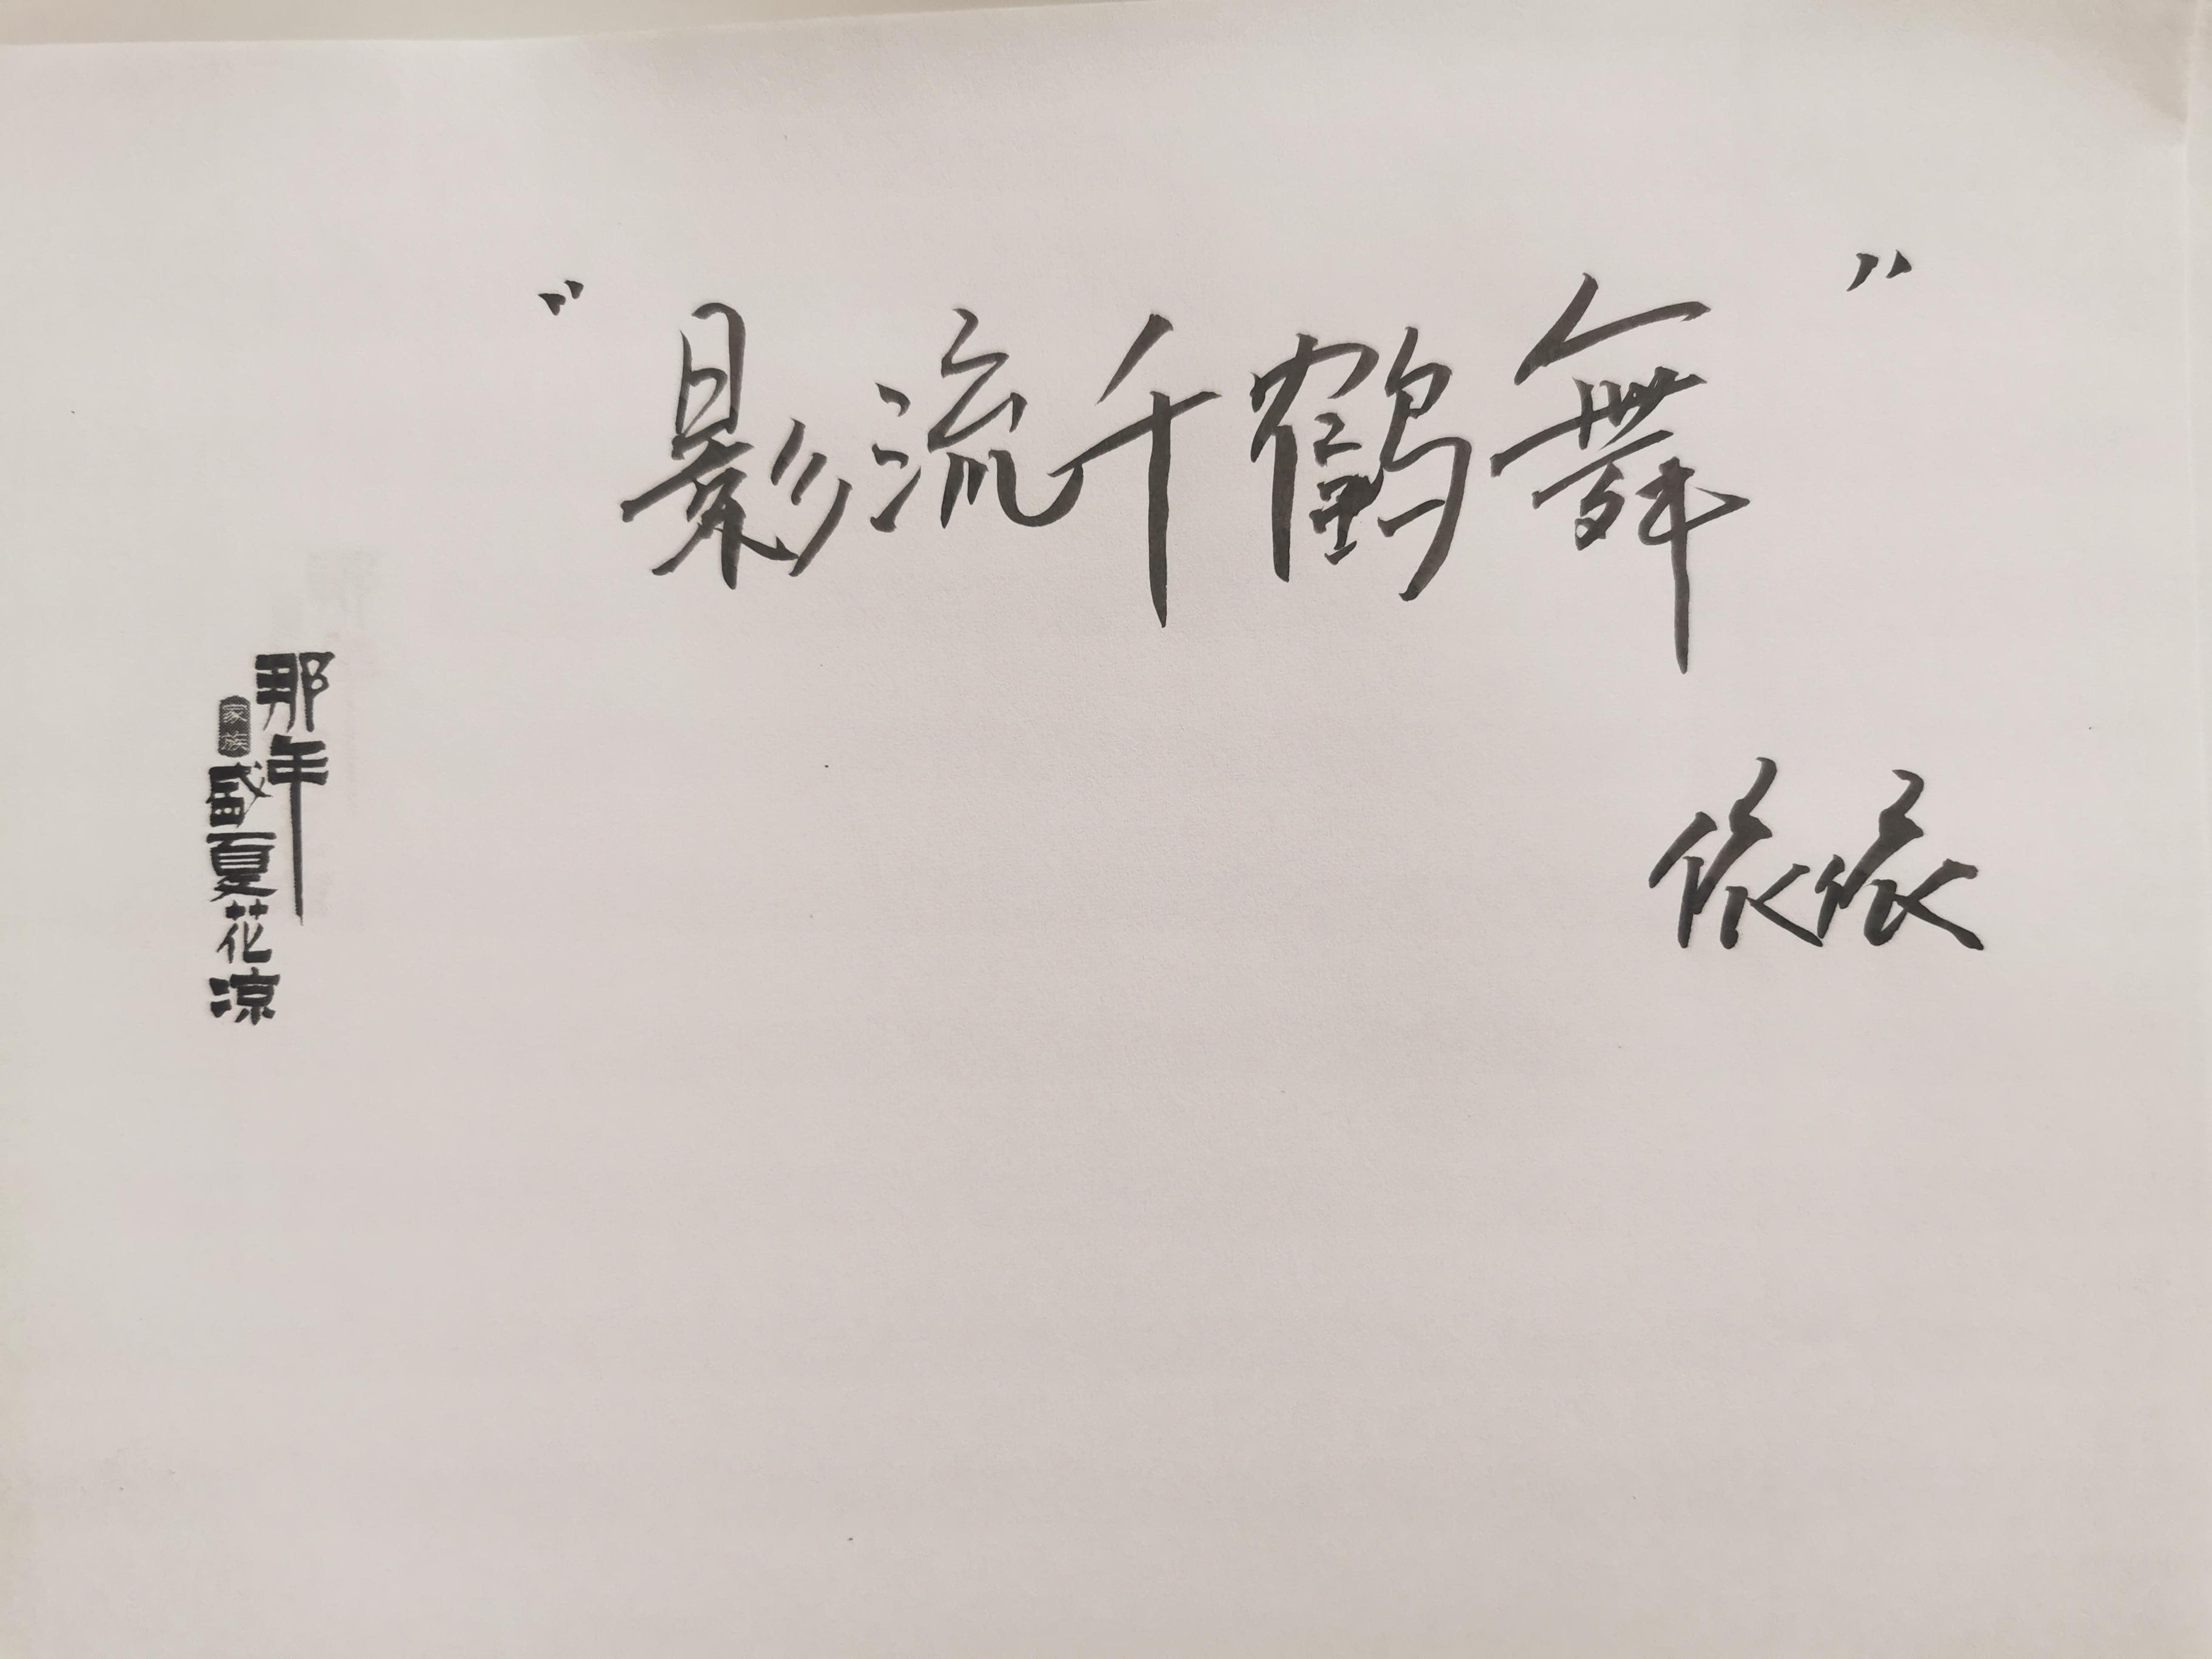 “影流千鹤舞”
依依
那年
家族
盛夏花凉